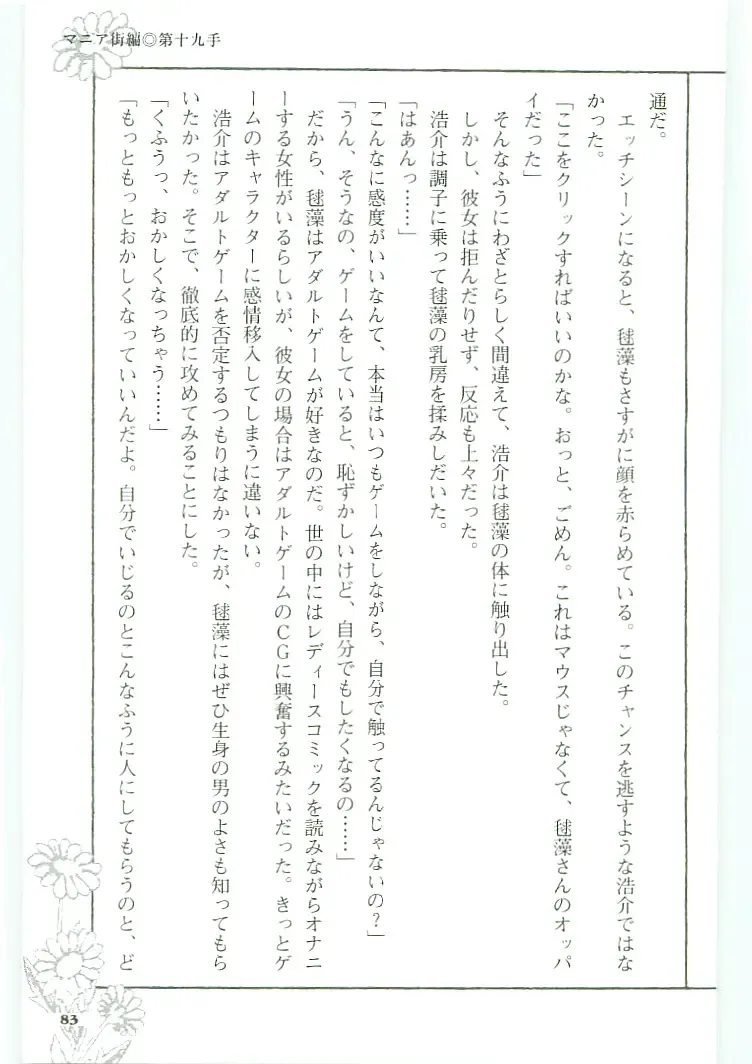 マニア街編◎第十九手
通だ。
エッチシーンになると、毬藻もさすがに顔を赤らめている。このチャンスを逃すような浩介ではな
かった。
「ここをクリックすればいいのかな。おっと、ごめん。これはマウスじゃなくて、毬藻さんのオッパ
イだった」
そんなふうにわざとらしく間違えて、浩介は毬藻の体に触り出した。
しかし、彼女は拒んだりせず、反応も上々だった。
浩介は調子に乗って毬藻の乳房を揉みしだいた。
「はあんっ……」
「こんなに感度がいいなんて、本当はいつもゲームをしながら、自分で触ってるんじゃないの？」
「うん、そうなの、ゲームをしていると、恥ずかしいけど、自分でもしたくなるの……」
だから、毬藻はアダルトゲームが好きなのだ。世の中にはレディースコミックを読みながらオナニ
ーする女性がいるらしいが、彼女の場合はアダルトゲームのCGに興奮するみたいだった。きっとゲ
ームのキャラクターに感情移入してしまうに違いない。
浩介はアダルトゲームを否定するつもりはなかったが、毬藻にはぜひ生身の男のよさも知ってもら
いたかった。そこで、徹底的に攻めてみることにした。
「くふうっ、おかしくなっちゃう……」
「もっともっとおかしくなっていいんだよ。自分でいじるのとこんなふうに人にしてもらうのと、ど
83